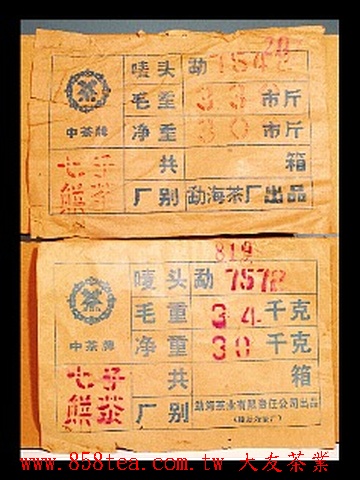 28
唛头 勐 7542
毛重 33 市斤
中茶牌
净重 30 市斤
七子
熊茶
共 箱
厂别 勐海茶厂出品
819
唛头 勐 7572
毛重 34 千克
中茶牌
净重 30 千克
七子
熊茶
共 箱
厂别 勐海茶业有限责任公司出品
www.858tea.com.tw 大友茶業